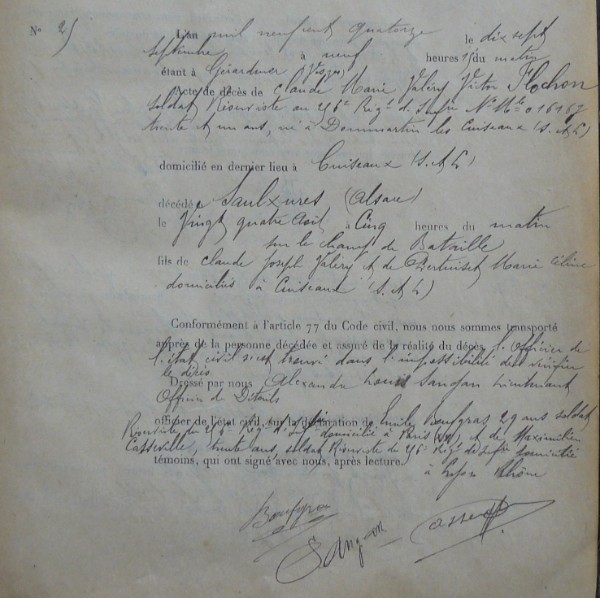 N° 25
L'an mil neuf cent quatorze le dix sept
septembre à neuf heures du matin
étant à Gérardmer (Vosges)
Acte de décès de Claude Marie Valéry Victor Flochon
soldat Réserviste au Rég. d'Inf. N° Mle 016167
trente et un ans, né à Dommartin les Cuiseaux (S. & L)
domicilié en dernier lieu à Cuiseaux (S. & L)
décédé à Saulxures (Alsace)
le Vingt quatre Août à Cinq heures du matin
sur le champ de Bataille
fils de Claude Joseph Valéry et de Marie Céline
domiciliés à Cuiseaux (S. & L)
Conformément à l'article 77 du Code civil, nous nous sommes transporté
auprès de la personne décédée et assuré de la réalité du décès. l'Officier de
l'état civil s'est trouvé dans l'impossibilité de vérifier
le décès
Dressé par nous Alexandre Louis Sangan Lieutenant
Officier de Détails
officier de l'état civil, sur la déclaration de Emile 29 ans soldat
Réserviste au Rég. d'Inf. domicilié à Paris et de Maximilien
trente ans, soldat Réserviste du Rég. d'Inf. domicilié
témoins, qui ont signé avec nous, après lecture.
à Lyon Rhône